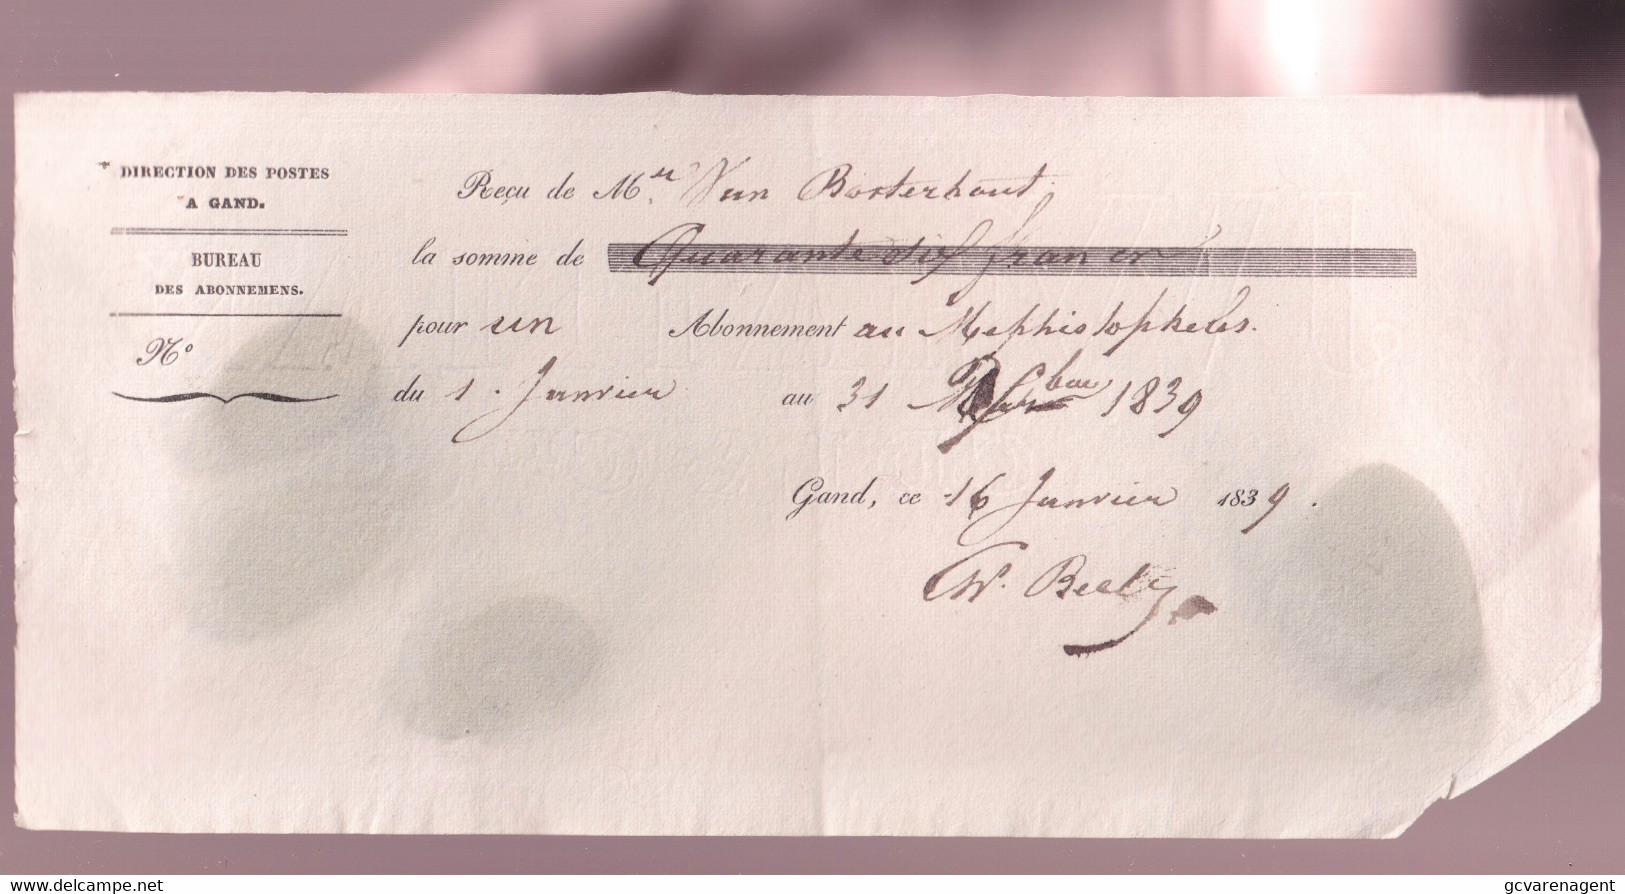 DIRECTION DES POSTES
A GAND.
BUREAU
DES ABONNEMENS.
N°
Reçu de Mr. Van Bosterhout
la somme de Quarante six francs
pour un Abonnement au Mephistopheles.
du 1. Janvier au 31 Xbre 1839
Gand, ce 16 Janvier 1839.
W.
delcampe.net
gcvarenagent